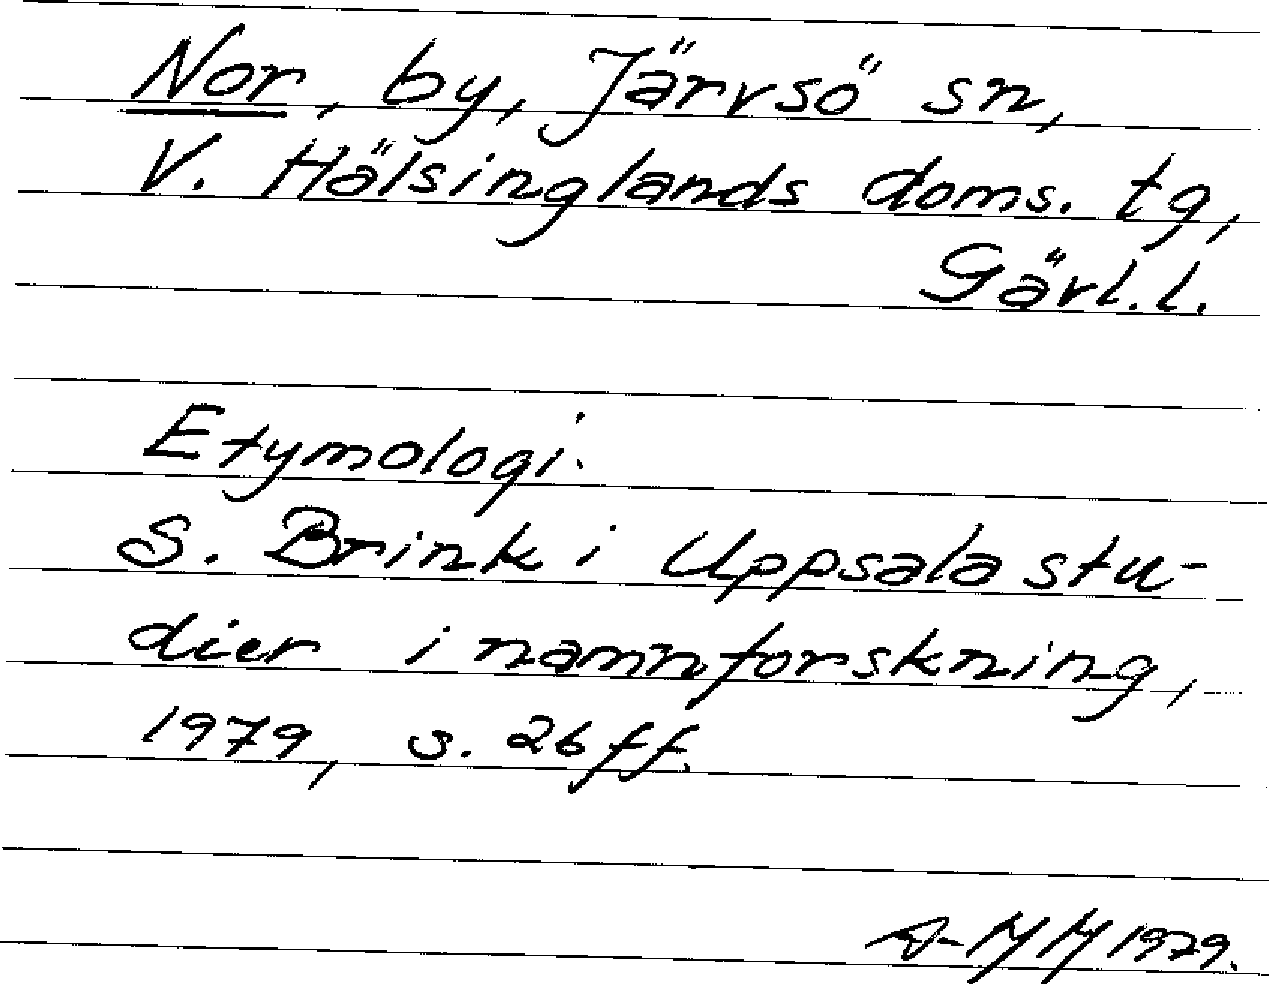 Nor, by, Järvsö sn,
V. Hälsinglands doms. tg,
Gävl. l.
Etymologi.
S. Brink i Uppsala stu-
dier i namnforskning,
1979, s. 26 ff.
A-MM 1979.